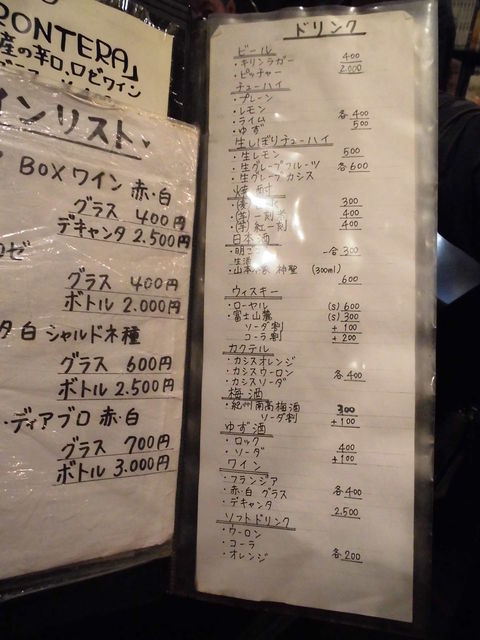 RONTERA」
産の辛口、ロゼワイン
グラス
インリスト
BOXワイン 赤・白
グラス 400円
デキャンタ 2.500円
ロゼ
グラス 400円
ボトル 2.000円
白 シャルドネ種
グラス 600円
ボトル 2.500円
・ディアブロ 赤・白
グラス 700円
ボトル 3.000円
ドリンク
ビール
・キリンラガー 400
・ピッチャー 2.000
チューハイ
・プレーン
・レモン
・ライム 各400
・ゆず 500
生しぼりチューハイ
・生レモン 500
・生グレープフルーツ 各600
・生グレープカシス
焼酎
300
(芋)一刻者 400
(芋)紅一刻 400
日本酒
一合300
・山本本家 神聖 (300ml)
600
ウィスキー
・ローヤル (S)600
・富士山麓 (S)300
ソーダ割 +100
コーラ割 +200
カクテル
・カシスオレンジ
・カシスウーロン 各400
・カシスソーダ
梅酒
・紀州南高梅酒 300
ソーダ割 +100
ゆず酒
・ロック 400
・ソーダ +100
ワイン
・フランジア
・赤・白 グラス 各400
・デキャンタ 2.500
ソフトドリンク
・ウーロン
・コーラ
・オレンジ 各200